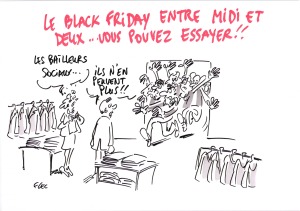 LE BLACK FRIDAY ENTRE MIDI ET
DEUX... VOUS POUVEZ ESSAYER!!
LES BAILLEURS
SOCIAUX...
ILS N'EN
PEUVENT
PLUS!!